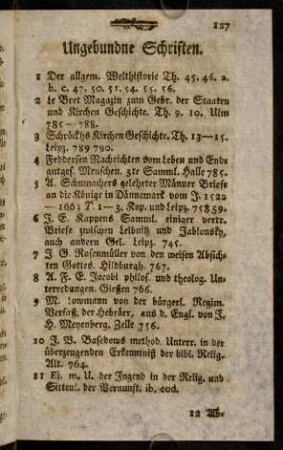 127
Ungebundne Schriften.
1 Der allgem. Welthistorie Th. 45. 46. a.
b. c. 47. 50. 51. 54. 55. 56.
2 Le Bret Magazin zum Gebr. der Staaten
und Kirchen Geschichte. Th. 9. 10. Ulm
785-788.
3 Schröckhs Kirchen Geschichte. Th. 13-15.
Leipz. 789 790.
4 Feddersen Nachrichten vom Leben und Ende
gutges. Menschen. 3te Samml. Halle 785.
5 A. Schumachers gelehrter Männer Briefe
an die Könige in Dännemark vom J. 1522
— 1663 T. 1-3. Kop. und Leipz. 75859.
6 J. E. Kappens Samml. einiger vertr.
Briefe zwischen Leibnitz und Jablonsky,
auch andern Gel. Leipz. 745.
7 J G. Rosenmüller von den weisen Absich-
ten Gottes. Hildburgh. 767.
8 A. F. E. Jacobi philos. und theolog. Un-
terredungen. Giesten 766.
9 M. Lowmann von der bürgerl. Regim.
Verfass. der Hebräer, aus d. Engl. von J.
H. Meyenberg. Zelle 756.
10 J. B. Basedows method. Unterr. in der
überzeugenden Erkenntniß der bibl. Relig.
Alt. 764.
11 Ej. m. U. der Jugend in der Relig. und
Sittenl. der Vernunft. ib. eod.
12 Ab-